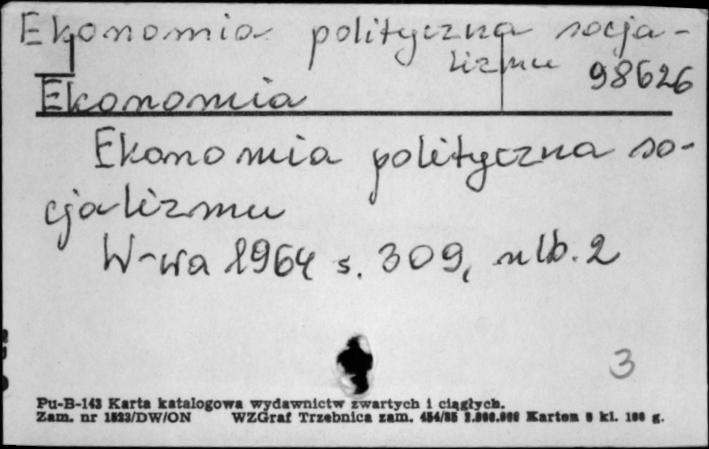 Ekonomia polityczna socja-
lizmu 98626
Ekonomia
Ekonomia polityczna so-
cjalizmu
W-wa 1964 s. 309, nlb. 2
3
Pu-B-143 Karta katalogowa wydawnictw zwartych i ciągłych.
Zam. nr 1523/DW/ON WZGraf Trzebnica zam. 454/85 Karton kl. g.